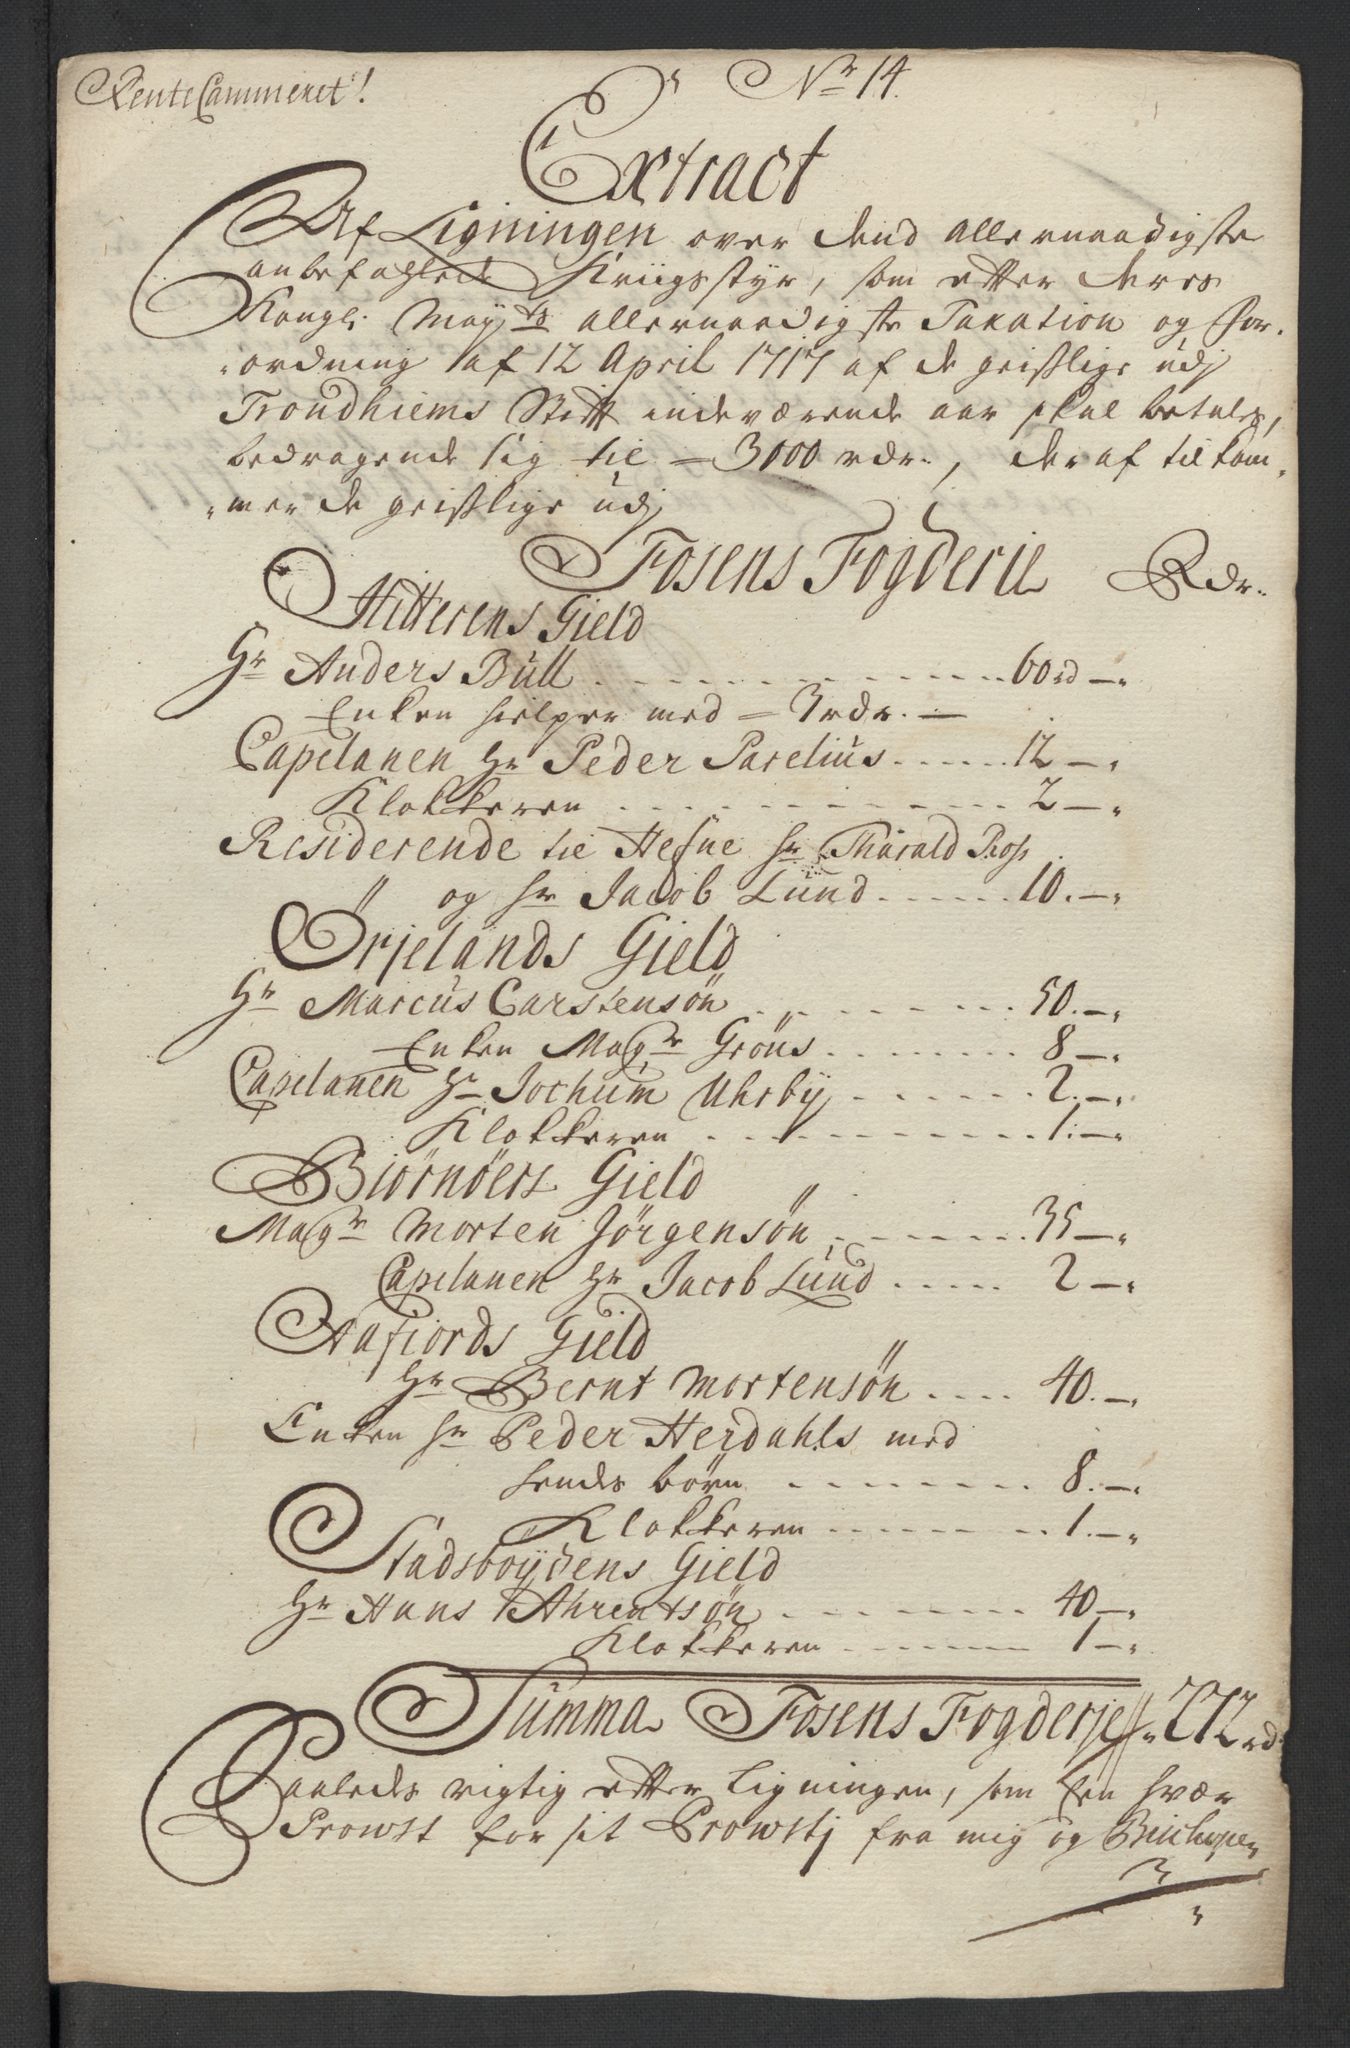 RenteCammeret!
No 14.
Extract
Af Ligningen over dend allernaadigste
anbefahlede Kriigsstyr, som efter deres
Kongl: Mayts allernaadigste Taxation og For-
ordning af 12 April 1717 af de geistlige udj
Trondhiems Stift indeværende aar skal betales,
bedragende sig til = 3000 rdr., der af tilkom-
mer de geistlige udj
Fosens Fogderie Rdr.
Hitterens Gield
Hr Anders Bull 60 rd —
Enken hielper med = 3 rdr. —
Capelanen Hr Peder Parelius 12 —
Klokkeren 2 —
Residerende til Hefne Hr Tharald
" og Hr Jacob Lund 10. —
Ørjelands Gield
Hr Marcus Carstensøn 50. —
Enken Magr Grøns 8 —
Capelanen Hr Jochum Uhrbÿ 2. —
Klokkeren 1. —
Biørnøers Gield
Magr Morten Jørgensøn 35 —
Capelanen Hr Jacob Lund 2 —
Aafiords Gield
Hr Bernt Mortensøn 40. —
Enken Hr Peder Herdahls med
hendes børn 8. —
Klokkeren 1. —
Stadsboÿdens Gield
Hr Hans Ahrentsøn 40 —
Klokkeren 1 —
Summa Fosens Fogderje 272 rd
Saaledes rigtig efter Ligningen, som een hvær
Prowst for sit Prowstj fra mig og Bischopen